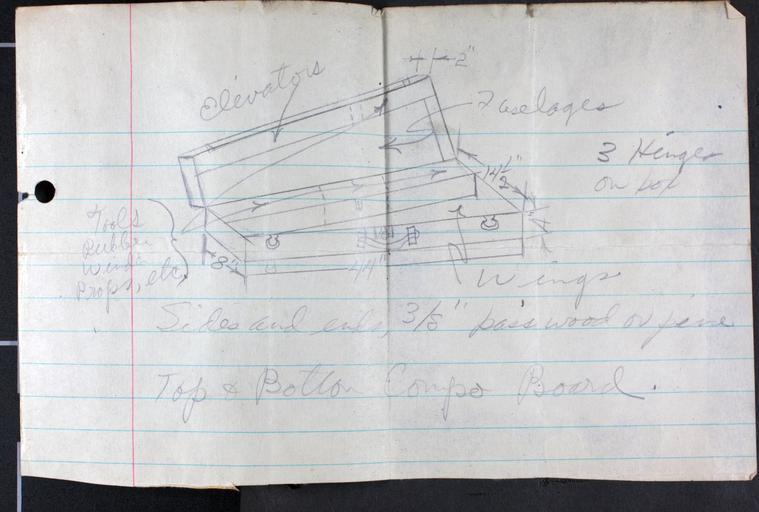 2"
Elevators
Fuselages
3 Hinges
on box
14½"
4"
Tools
Rubber
Winder
Props, etc,
8"
44"
Wings
Sides and ends, 3/8" basswood or pine
Top & Bottom Compo Board.